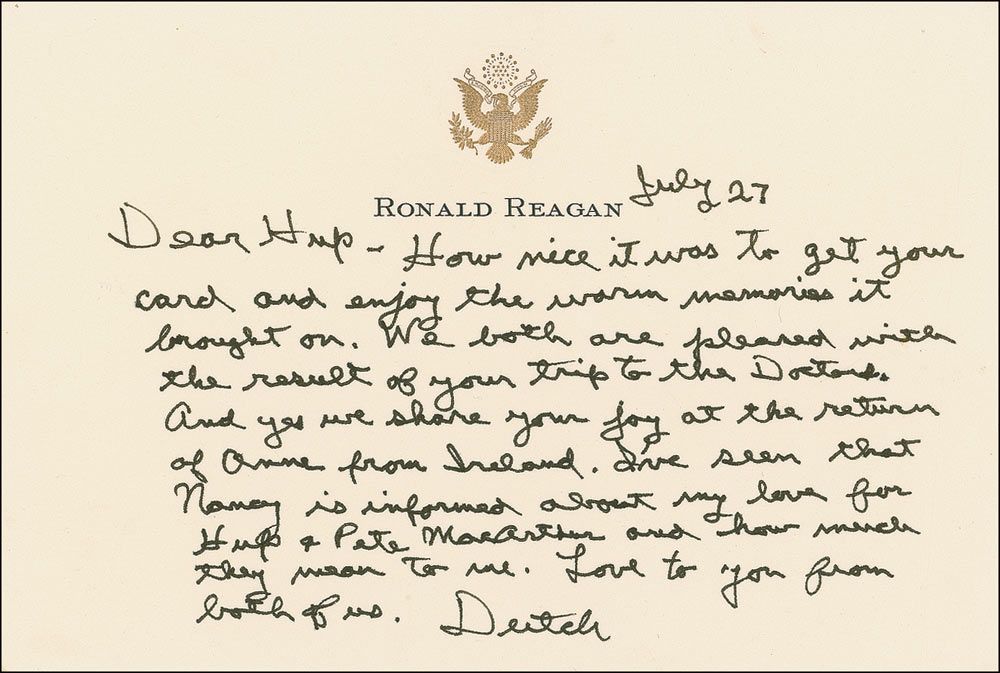 RONALD REAGAN
July 27
Dear Hup - How nice it was to get your
card and enjoy the warm memories it
brought on. We both are pleased with
the result of your trip to the Doctors.
And yes we share your joy at the return
of Anne from Ireland. I've seen that
Nancy is informed about my love for
Hup & Pete MacArthur and how much
they mean to me. Love to you from
both of us. Dutch